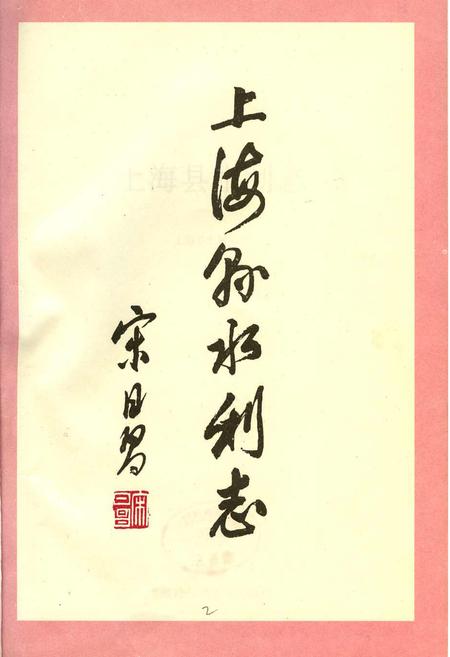 上海縣水利志
宋日昌
2